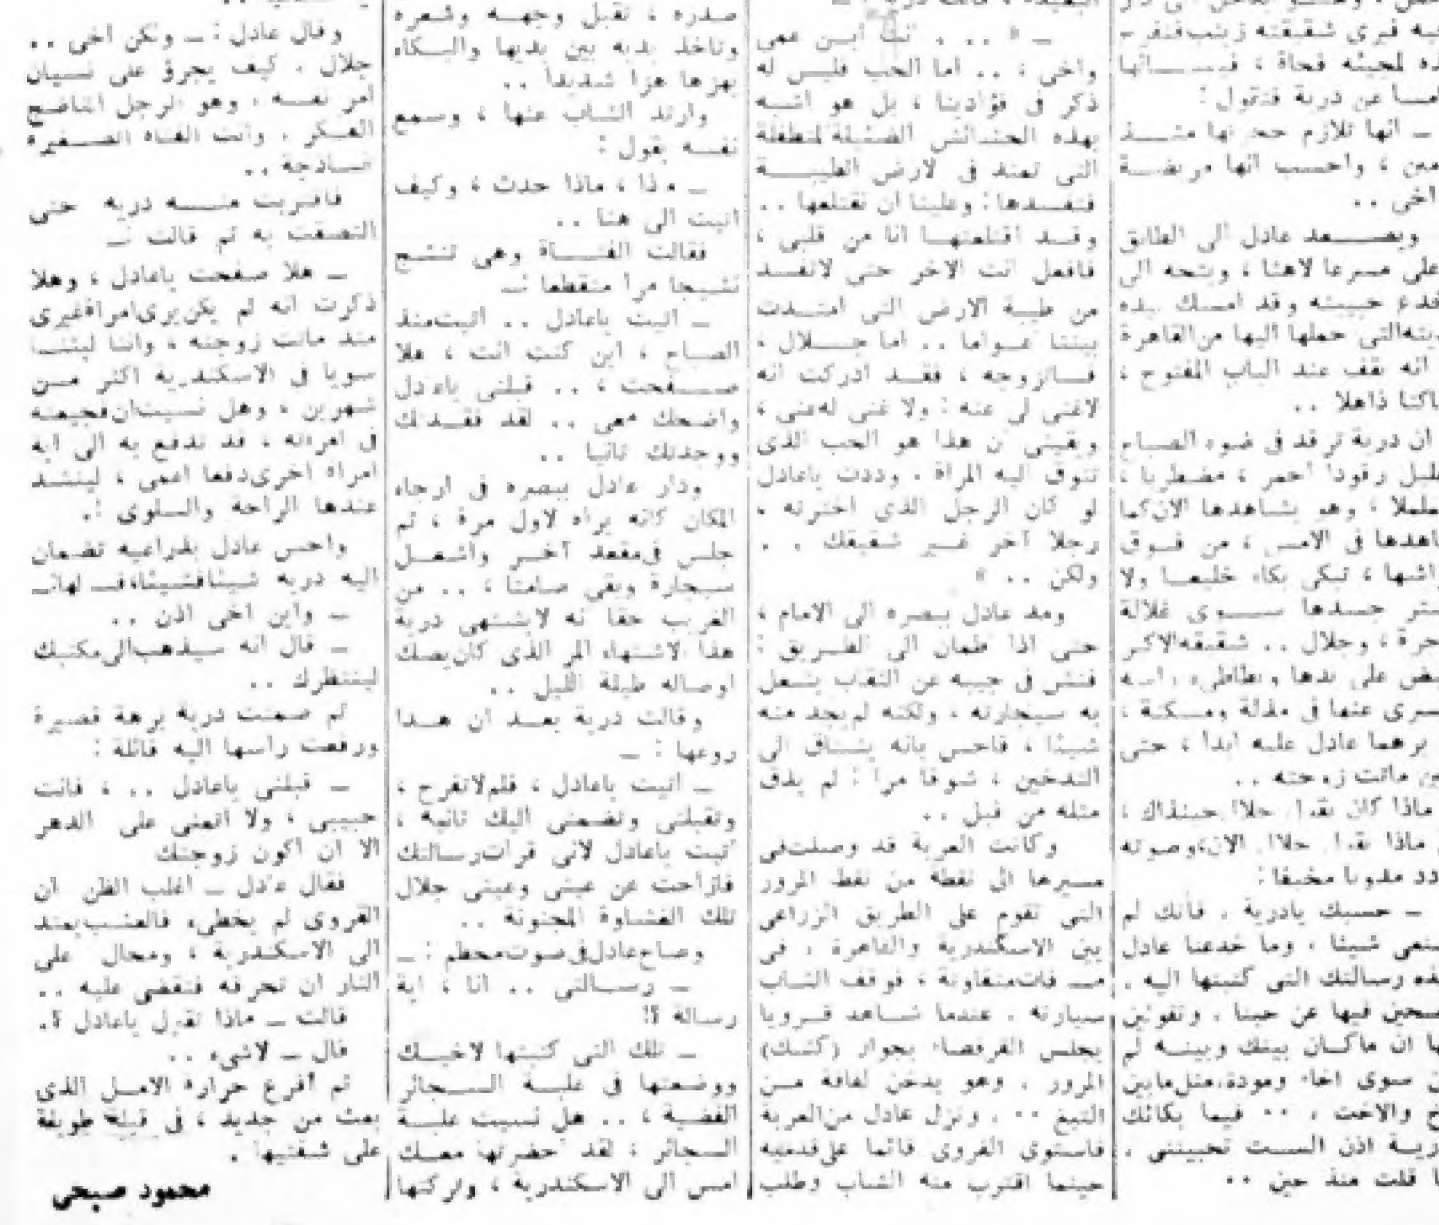 فيه فيرى شقيقته زينب فتفرح
ده لمجيئه فجأة ، فيسـانها
امـا عن درية فتقول :
ـ انها تلازم حجرتها منـذ
مين ، واحسب انها مريضـة
اخى ..
ويصـعد عادل الى الطابق
على مسرعا لاهثا ، ويتجه الى
خدع حبيبته وقد امسك بيده
ديته التى حملها اليها من القاهرة
انه يقف عند الباب المفتوح ،
ساكنا ذاهلا ..
ان درية ترقد فى ضوء الصباح
رقودا احمر ، مضطربا ،
، وهو يشاهدها الان كما
ماهدها فى الامس ، من فـوق
راشها ، تبكى بكاء خليعـا ولا
ستر جسدها سـوى غلالة
، وجلال .. شقيقه الاكبر
على يدها ويطاطىء راسه
سرى عنها فى مذلة ومسكنة ،
يرهما عادل عليه ابدا ، حتى
ماتت زوجته ..
ماذا كان يقول جلال حينذاك ،
ماذا يقول جلال الان وصوته
:
ـ حسبك يادرية . فأنك لم
شيئا . وما خدعنا عادل
رسالتك التى كتبتها اليه .
فيها عن حبنا . وتقولين
ان ماكـان بينك وبينـه لم
سوى اخاء ومودة مثل مابين
والاخت . .. فيما بكائك
درية اذن الست تحبيننى .
قلت منذ حين ..
ـ « .. . انت ابـن عمى
واخى ، .. اما الحب فليس له
ذكر فى فؤادينا ، بل هو اشبـه
بهذه الحشـائش الضئيلة المتطفلة
التى تمتد فى الارض الطيبـة
فتفسـدها : وعلينا ان نقتلعها ..
وقـد اقتلعتهـا انا من قلبى ،
فافعل انت الاخر حتى لاتفسـد
من طيبة الارض التى امتـدت
بيننا اعـواما .. اما جـلال ،
فسـاتزوجه ، فقـد ادركت انه
لاغنى لى عنه : ولا غنى له عنى ،
ويقينى ان هذا هو الحب الذى
تتوق اليه المراة . وددت ياعادل
لو كان الرجل الذى اخترته .
رجلا آخر غـير شقيقك . .
ولكن .. »
ومد عادل ببصره الى الامام ،
حتى اذا طمان الى الطـريق :
فتش فى جيبه عن الثقاب يشعل
به سيجارته ، ولكنه لم يجد منه
شيئا ، فاحس بانه يشـتاق الى
التدخين ، شوقا مرا : لم يذق
مثله من قبل ..
وكانت العربة قد وصلت فى
مسـيرها الى نقطة من نقط المرور
التى تقوم على الطريق الزراعى
بين الاسكندرية والقاهرة . فى
مسـافات متفاوتة ، فوقف الشـاب
بسيارته . عندما شـاهد قـرويا
يجلس القرفصاء بجوار (كشـك)
المرور . وهو يدخن لفافة مـن
التبغ .. . ونزل عادل من العربة
فاستوى القروى قائما على قدميه
حينما اقترب منه الشاب وطلب
صدره ، تقبل وجهـه وشعره
وتاخذ يديه بين يديها والبـكاء
يهزها هزا شديدا ..
وارتد الشـاب عنها ، وسـمع
نفسـه يقول :
ـ ماذا ، ماذا حدث ، وكيف
اتيت الى هنا ..
فقالت الفتـاة وهى تنشـج
نشـيجا مرا متقطعا :ـ
ـ اتيت ياعادل .. اتيت منذ
الصباح ، اين كنت انت ، هلا
صـفحت ، .. قبلنى ياعادل
واضحك معى .. لقد فقـدتك
ووجدتك ثانيا ..
ودار عادل ببصره فى ارجاء
المكان كانه يراه لاول مرة ، ثم
جلس فى مقعد آخـر واشعـل
سـيجارة وبقى صامتا ، .. من
الغريب حقا انه لايشـتهى درية
هذا الاشتهاء المر الذى كان يمسك
اوصاله طيلة الليل ..
وقالت درية بعـد ان هـدا
روعها : ـ
ـ اتيت ياعادل ، فلم لاتفرح ،
وتقبلنى وتضمنى اليك ثانية ،
اتيت ياعادل لانى قرات رسالتك
فازاحت عن عينى وعينى جلال
تلك الغشـاوة المجنونة ..
وصاح عادل فى صوت محطم : ـ
ـ رسـالتى .. انا ، اية
رسالة ؟!
ـ تلك التى كتبتها لاخيـك
ووضعتها فى علبـة السـجائر
الفضية ، .. هل نسـيت علبـة
السـجائر ، لقد حضرتها معـك
امس الى الاسكندرية ، وتركتها
وقال عادل : ـ ولكن اخى ..
جلال . كيف يجرؤ على نسيان
امر نفسـه . وهو الرجل الناضـج
الفـكر . وانت الفتاة الصـغيرة
السـاذجة ..
فاقتربت منـه درية حتى
التصقت به ثم قالت :ـ
ـ هلا صفحت ياعادل ، وهلا
ذكرت انه لم يكن يرى امراة غيرى
منذ ماتت زوجته ، واننا لبثنـا
سويا فى الاسكندرية اكثر مـن
شهرين ، وهل نسيت ان فجيعته
فى امراته ، قد تدفع به الى اية
امراة اخرى دفعا اعمى ، لينشـد
عندها الراحة والسـلوى :.
واحس عادل بذراعيه تضمان
اليه درية شيئا فشيئا،
ـ واين اخى اذن ..
ـ قال انه سيذهب الى مكتبك
لينتظرك ..
ثم صمتت درية برهة قصيرة
ورفعت راسها اليه قائلة :
ـ قبلنى ياعادل .. ، فانت
حبيبى ، ولا اتمنى على الدهر
الا ان اكون زوجتك
فقال عادل ـ اغلب الظن ان
القروى لم يخطىء فالعشب يمتد
الى الاسكندرية ، ومحال على
النار ان تحرقه فتقضى عليه ..
قالت ـ ماذا تقول ياعادل ؟.
قال ـ لاشىء ..
ثم افرغ حرارة الامـل الذى
بعث من جديد ، فى قبلة طويلة
على شفتيها .
محمود صبحى